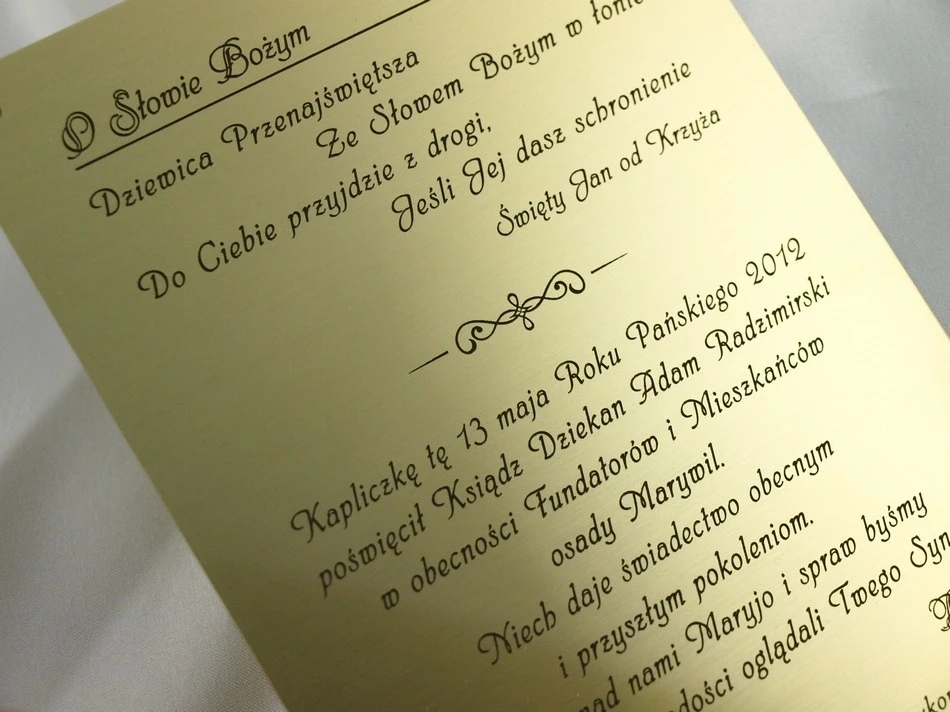 O Słowie Bożym
Dziewica Przenajświętsza
Ze Słowem Bożym w łonie
Do Ciebie przyjdzie z drogi,
Jeśli Jej dasz schronienie
Święty Jan od Krzyża
Kapliczkę tę 13 maja Roku Pańskiego 2012
poświęcił Ksiądz Dziekan Adam Radzimirski
w obecności Fundatorów i Mieszkańców
osady Marywil.
Niech daje świadectwo obecnym
i przyszłym pokoleniom.
nami Maryjo i spraw byśmy
oglądali Twego